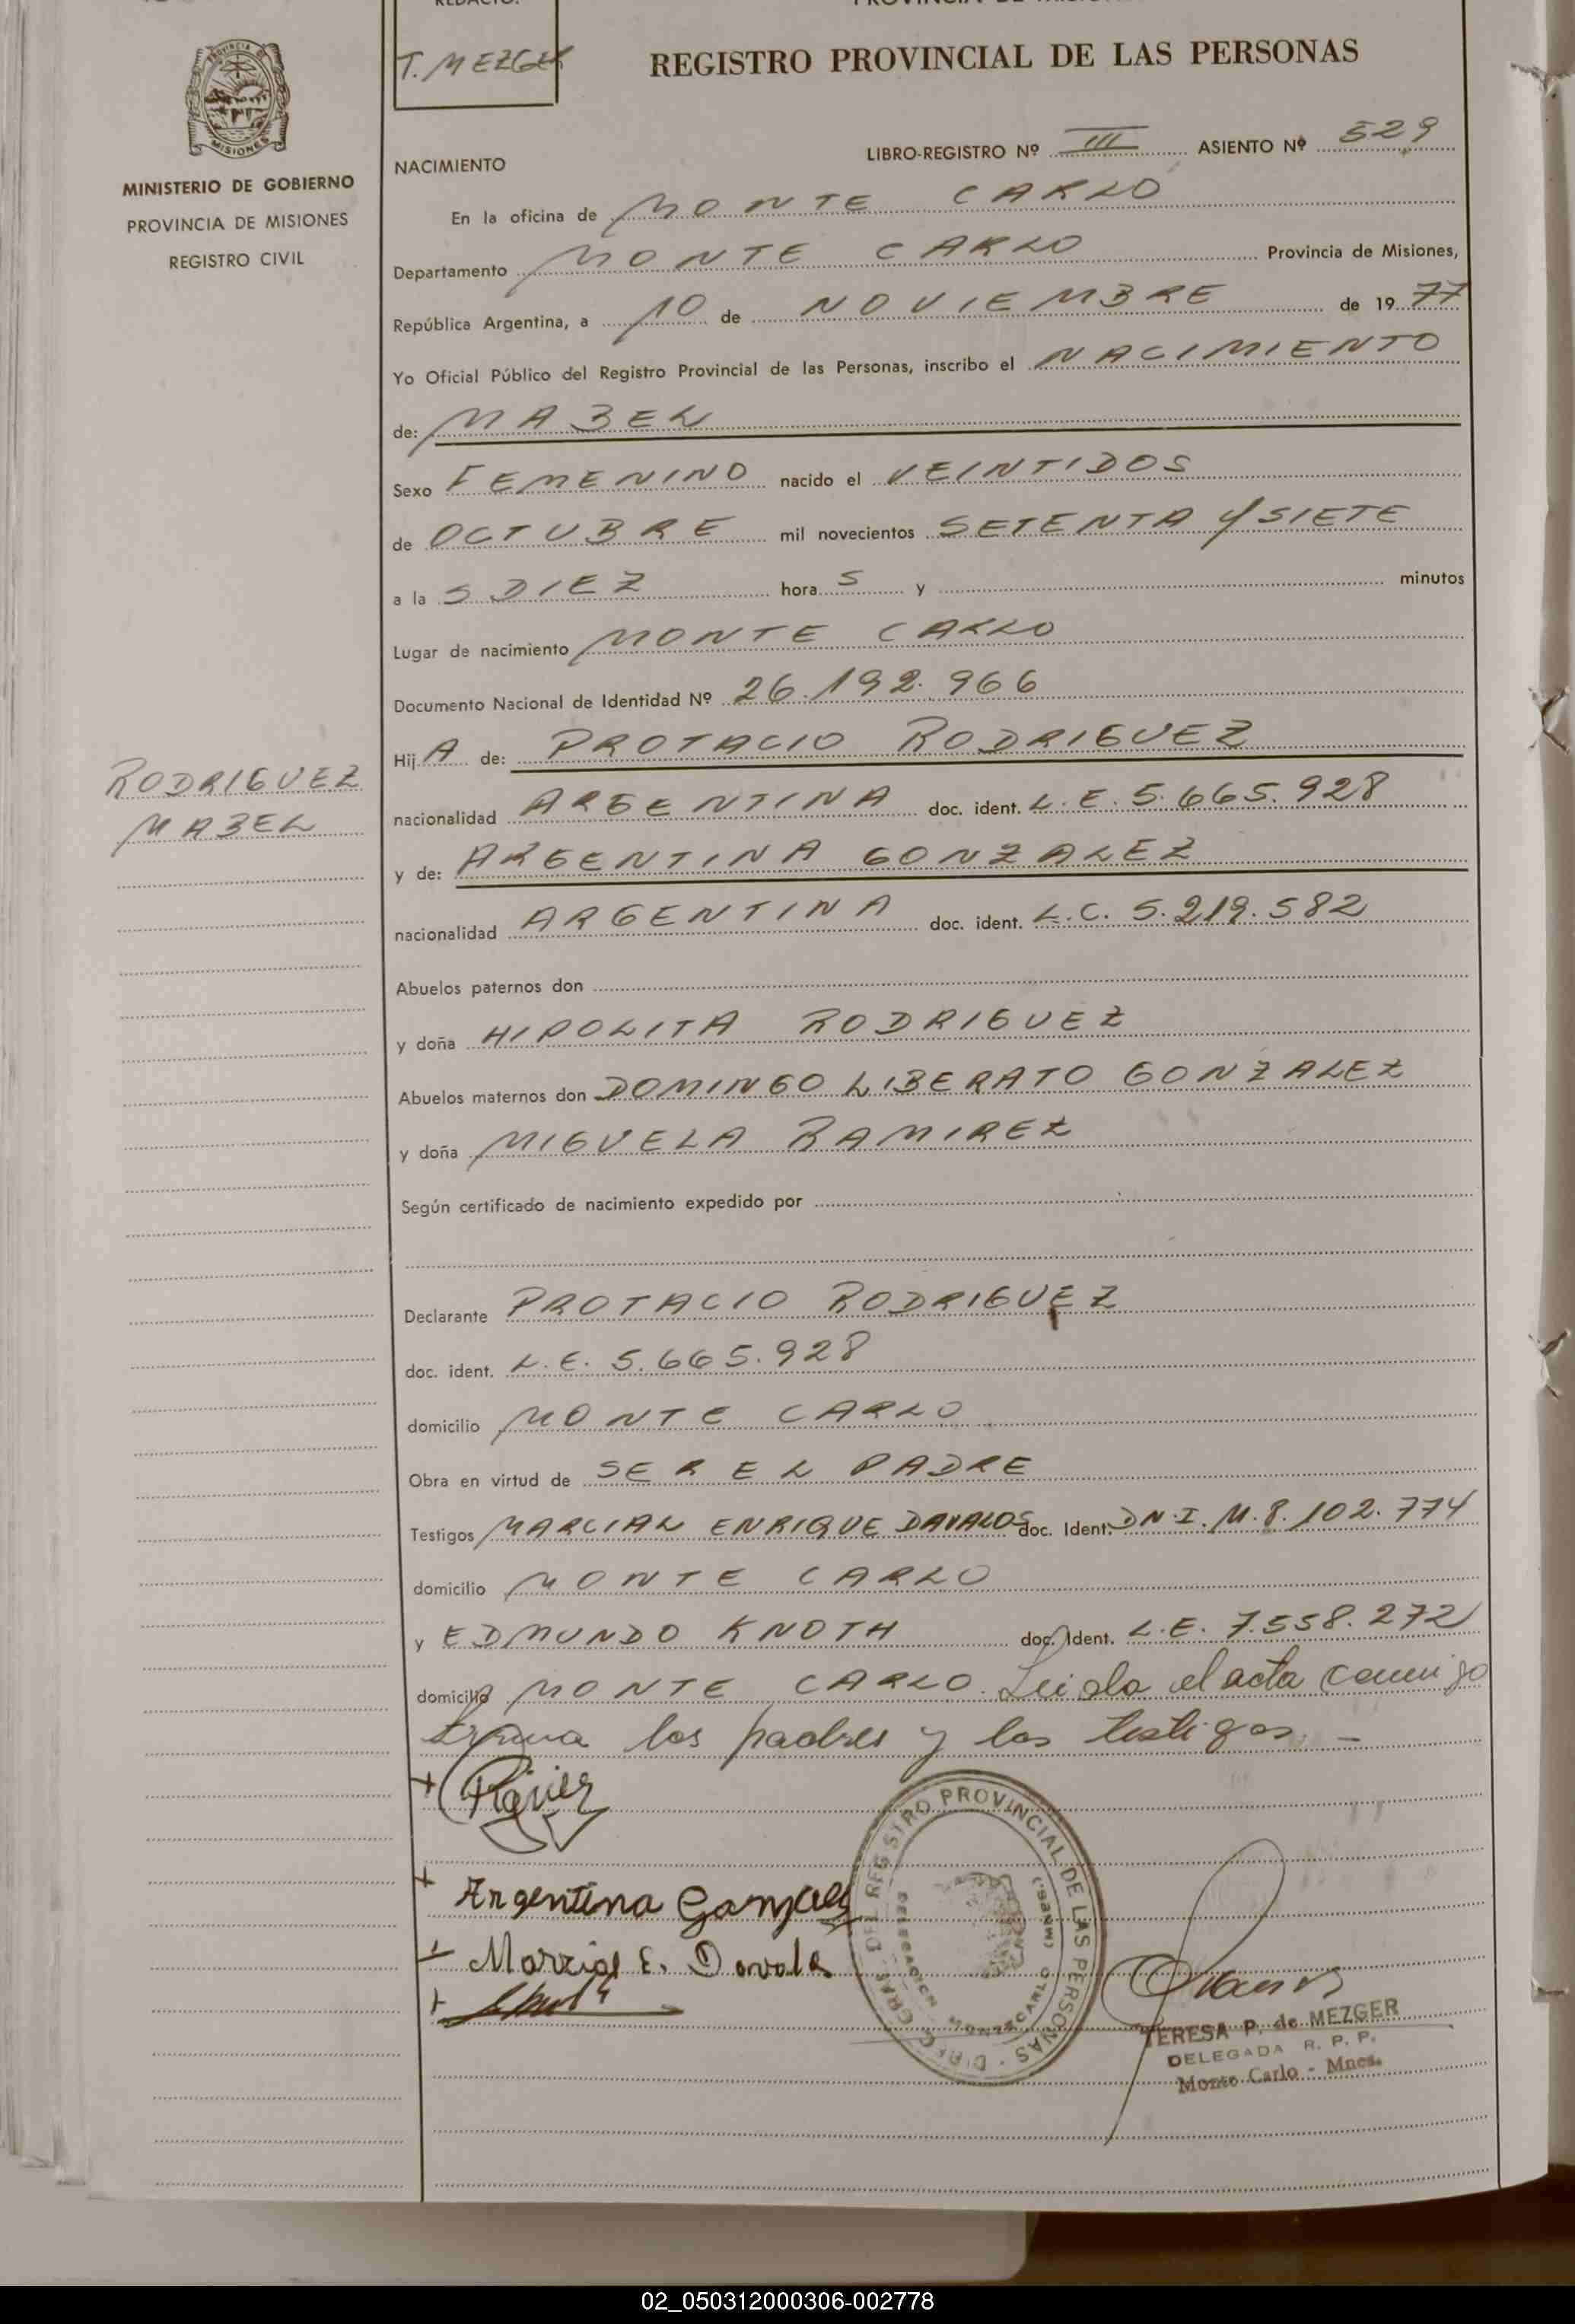 REDACTO:
T. MEZGER
REGISTRO PROVINCIAL DE LAS PERSONAS
MISIONES
MINISTERIO DE GOBIERNO
PROVINCIA DE MISIONES
REGISTRO CIVIL
NACIMIENTO
LIBRO-REGISTRO Nº III ASIENTO Nº 529
En la oficina de MONTE CARLO
Departamento MONTE CARLO Provincia de Misiones,
República Argentina, a 10 de NOVIEMBRE de 1977
Yo Oficial Público del Registro Provincial de las Personas, inscribo el NACIMIENTO
de: MABEL
Sexo FEMENINO nacido el VEINTIDOS
de OCTUBRE mil novecientos SETENTA Y SIETE
a la S DIEZ hora S y minutos
Lugar de nacimiento MONTE CARLO
Documento Nacional de Identidad Nº 26.192.966
Hij A de: PROTACIO RODRIGUEZ
RODRIGUEZ
MABEL
nacionalidad ARGENTINA doc. ident. L.E. 5.665.928
y de: ARGENTINA GONZALEZ
nacionalidad ARGENTINA doc. ident. L.C. 5.219.582
Abuelos paternos don
y doña HIPOLITA RODRIGUEZ
Abuelos maternos don DOMINGO LIBERATO GONZALEZ
y doña MIGUELA RAMIREZ
Según certificado de nacimiento expedido por
Declarante PROTACIO RODRIGUEZ
doc. ident. L.E. 5.665.928
domicilio MONTE CARLO
Obra en virtud de SER EL PADRE
Testigos MARCIAL ENRIQUE DAVALOS doc. Ident. DN.I. M. 8.102.774
domicilio MONTE CARLO
y EDMUNDO KNOTH doc. Ident. L.E. 7.558.272
domicilio MONTE CARLO. Leida el acta conmigo
firma los padres y los testigos. -
Argentina Gonzalez
Marcial E. Davalos
REGISTRO PROVINCIAL DE LAS PERSONAS
DELEGACION MONTECARLO (MNES.)
TERESA P. de MEZGER
DELEGADA R. P. P.
Monte Carlo - Mnes.
02_050312000306-002778